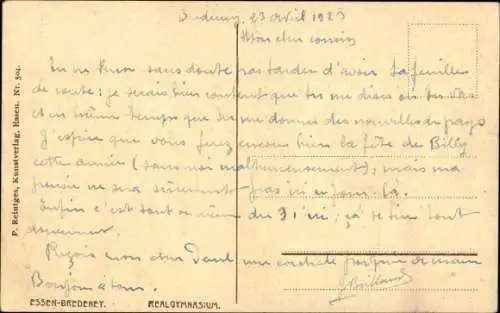 Bredeney, 23 avril 1923
Mon cher cousin
Tu ne dois sans doute pas tarder d'avoir ta feuille
de route : je serais bien content que tu me dises où tu vas
et en même temps que tu me donnes des nouvelles du pays
J'espère que vous ferez encore bien la fête de Billy
cette année (sans moi malheureusement) ; mais ma
pensée ne sera sûrement pas ici ce jour-là.
Enfin c'est tout au même du 31 ici ; ça se tire tout
doucement.
Reçois mon cher Paul une cordiale poignée de main
Bonjour à tous.
ESSEN-BREDENEY. REALGYMNASIUM.
P. Reintges, Kunstverlag, Essen. Nr. 504.